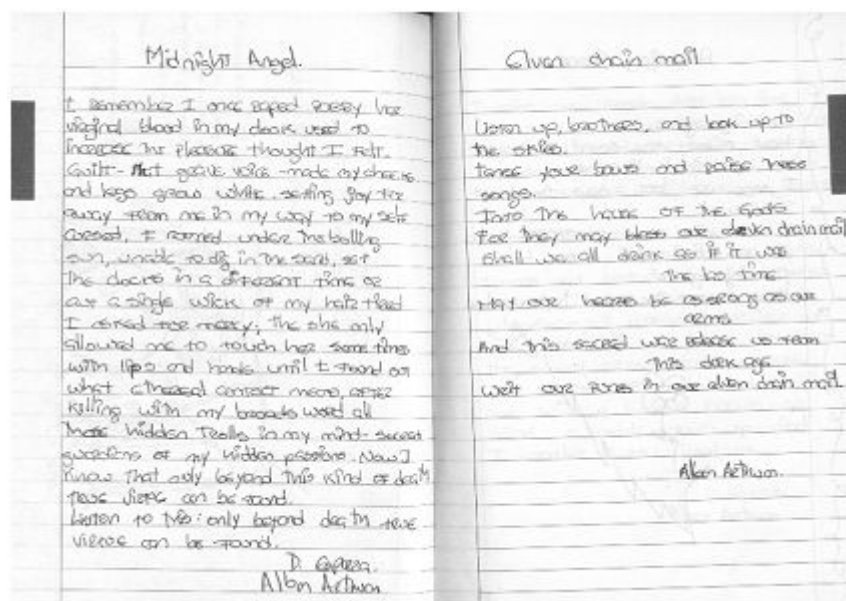 Midnight Angel.
I remember I once raped Poetry her
vaginal blood in my doors used to
increase the pleasure thought I felt.
Guilt - grave voice - made my cheeks
and legs grow white, setting joy far
away from me in my way to my self
consent. I roamed under the boiling
sun, unable to dig in the sand, set
the doors in a different time or
cut a single wick of my hair. Tired
I asked for mercy; the she only
allowed me to touch her some times
with lips and hands until I found out
what ethereal contact means, after
killing with my word all
those hidden trolls in my mind - secret
guardians of my hidden passions. Now I
know that only beyond this kind of death
true can be found.
Listen to this: only beyond death true
can be found.
D.
Allan Arthur
Elven chain mail
Listen up, brothers, and look up to
the skies.
Tense your bows and raise these
songs.
Into the house of the Gods
For they may bless our elven chain mail
Shall we all drink as if it was
the time
May our hearts be as strong as our
arms
And this sacred war release us from
this dark age.
our runes in our elven chain mail.
Allan Arthur.